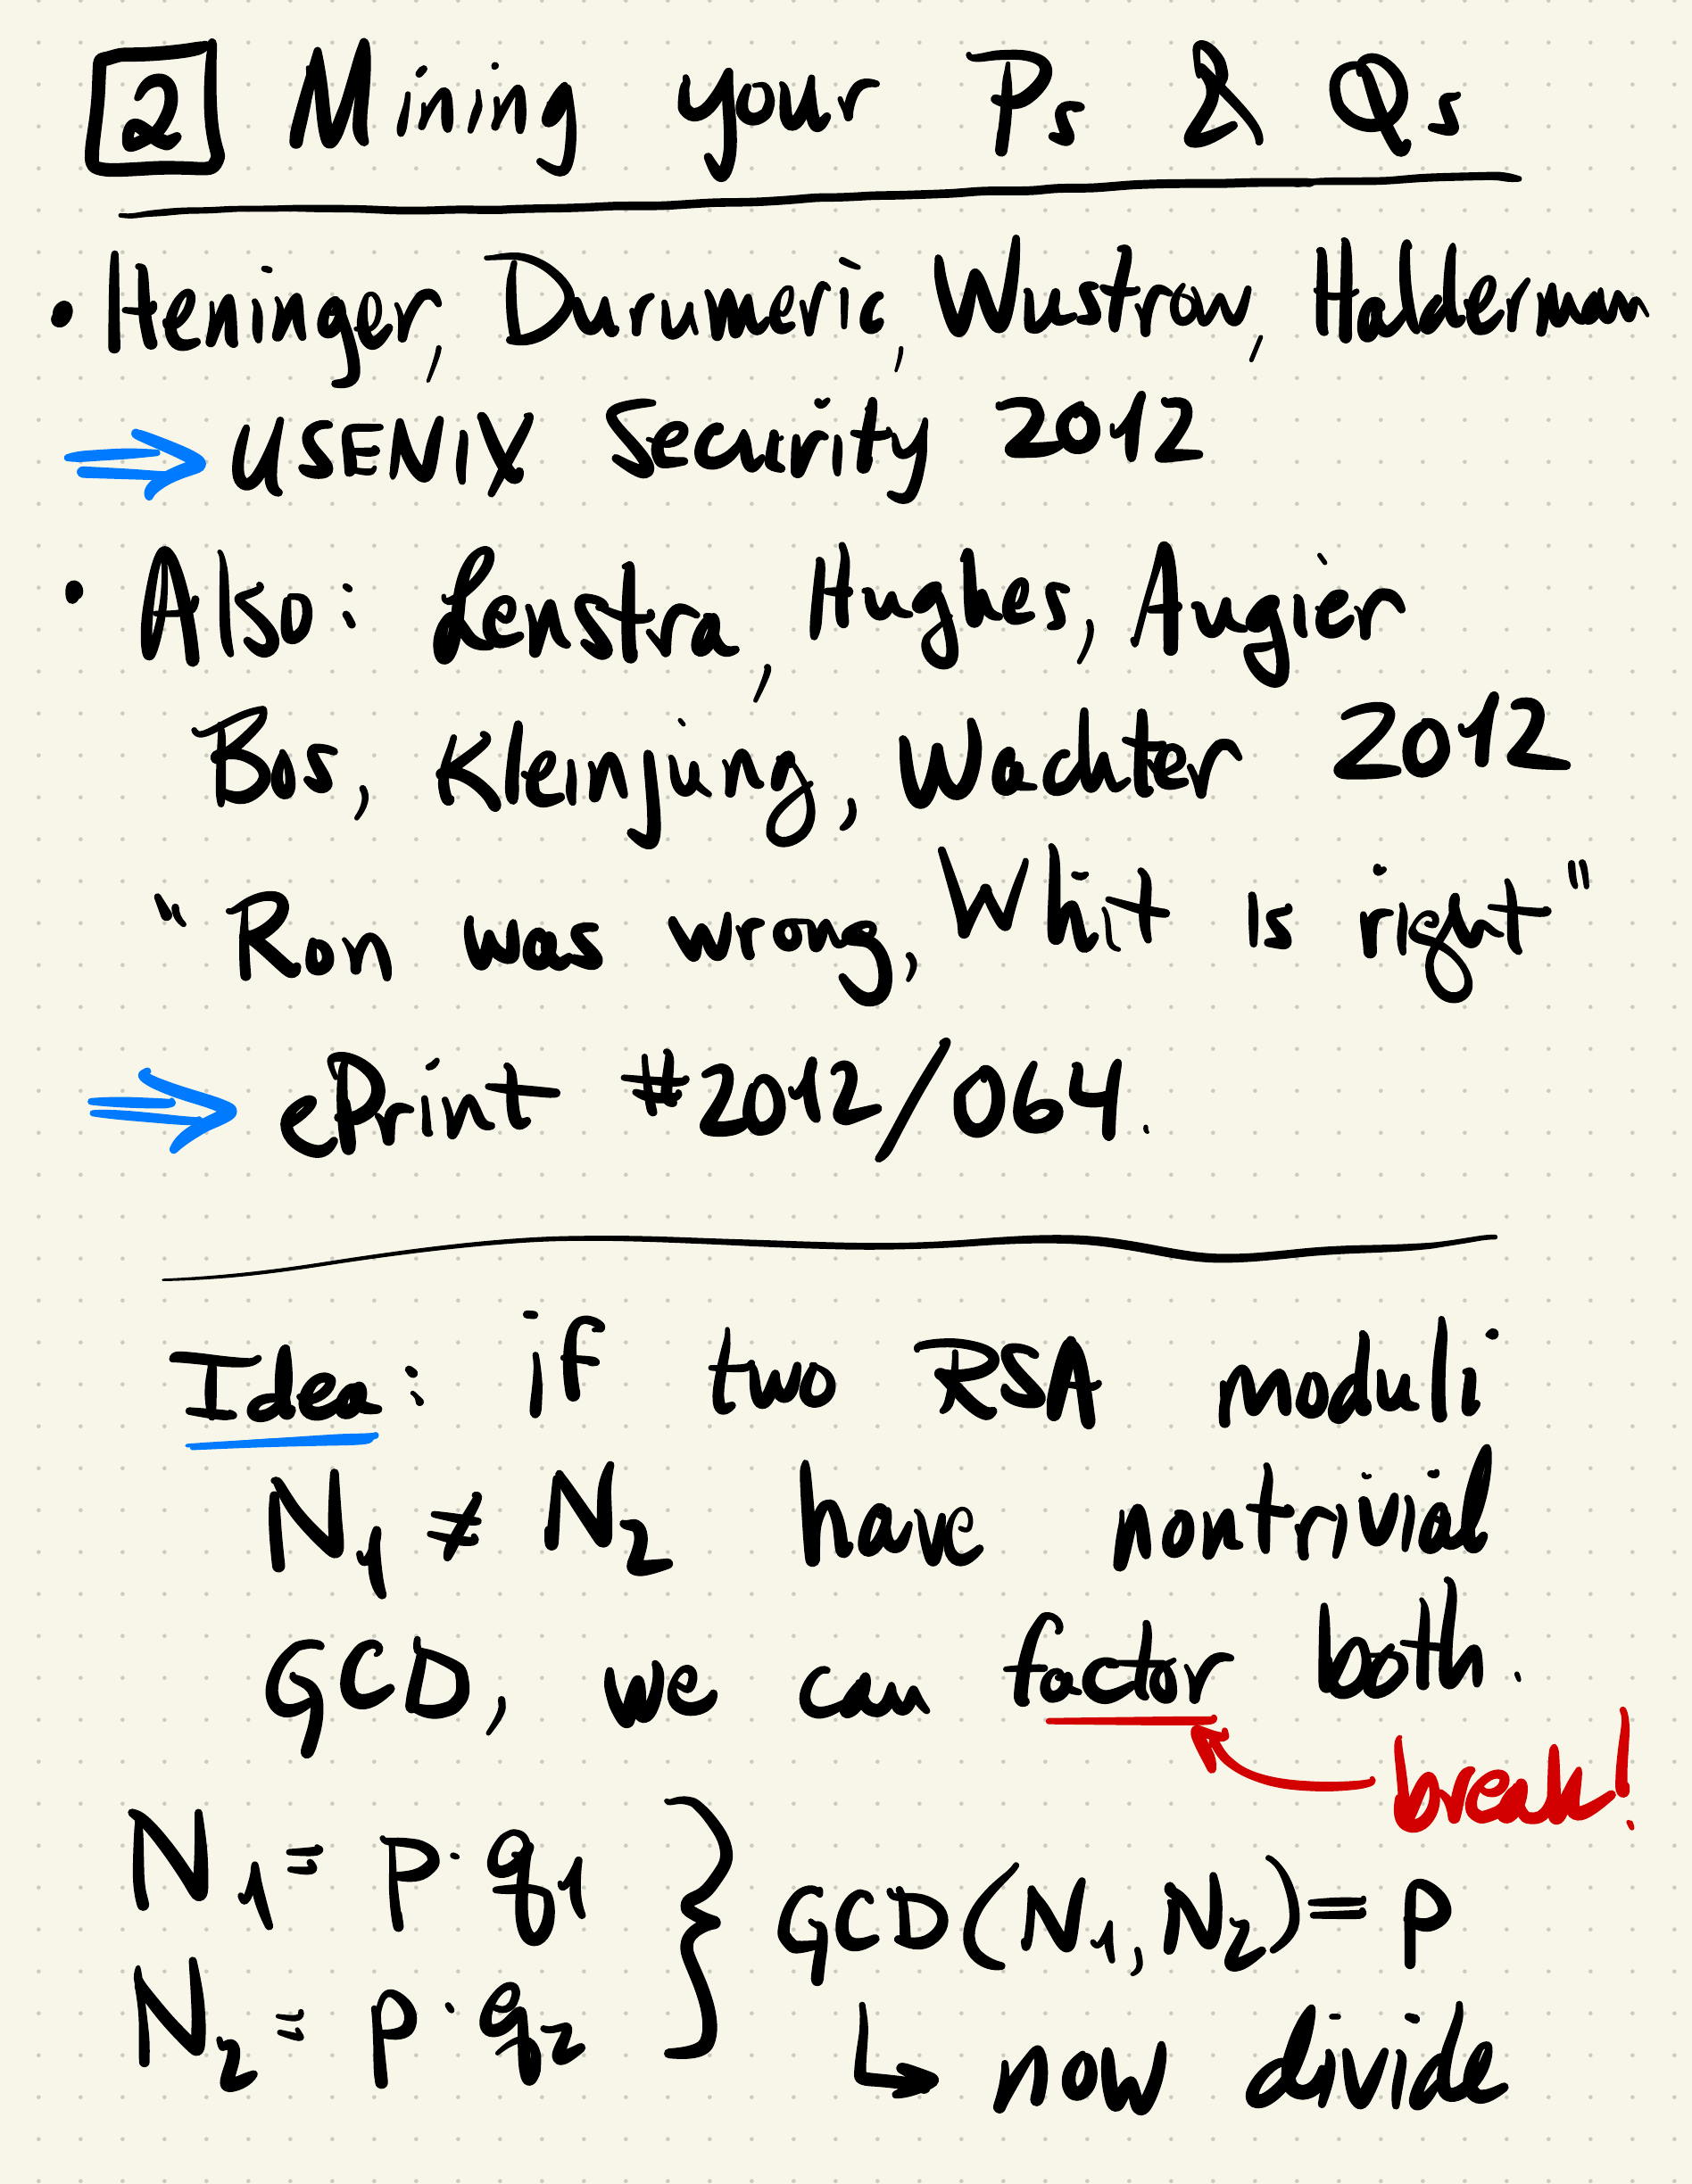 2 Mining your Ps & Qs
• Heninger, Durumeric, Wustrow, Halderman
⇒ USENIX Security 2012
• Also: Lenstra, Hughes, Augier
Bos, Kleinjung, Wachter 2012
"Ron was wrong, Whit is right"
⇒ ePrint #2012/064.
Idea: if two RSA moduli
N₁ ≠ N₂ have nontrivial
GCD, we can factor both.
break!
N₁ = p · q₁
N₂ = p · q₂
} GCD(N₁, N₂) = p
↳ now divide